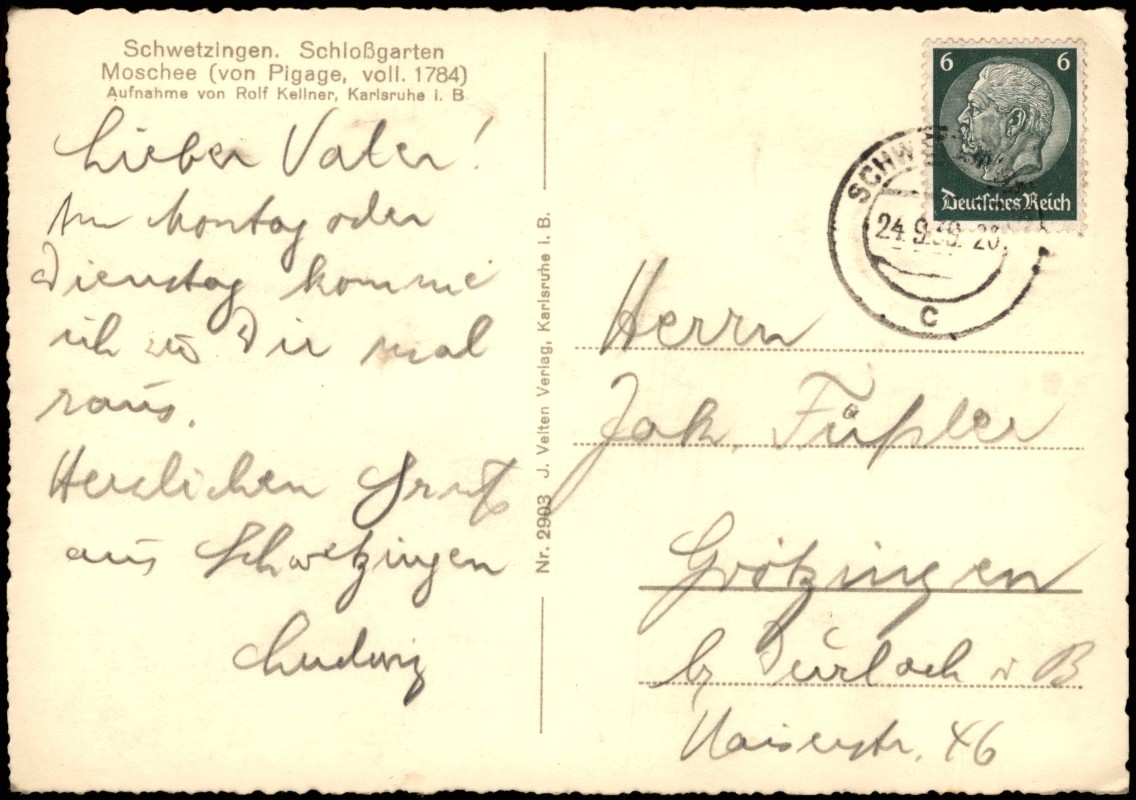 Schwetzingen. Schloßgarten
Moschee (von Pigage, voll. 1784)
Aufnahme von Rolf Kellner, Karlsruhe i. B
Lieber Vater!
Am Montag oder
Dienstag komme
ich zu Dir mal
raus.
Herzlichen Gruß
aus Schwetzingen
Ludwig
Nr. 2903 J. Velten Verlag, Karlsruhe i. B.
6 6
Deutsches Reich
SCHW
24.9.39. 20.
c
Herrn
Jak. Füßler
Grötzingen
b/ Durlach i B
Kaiserstr. 46